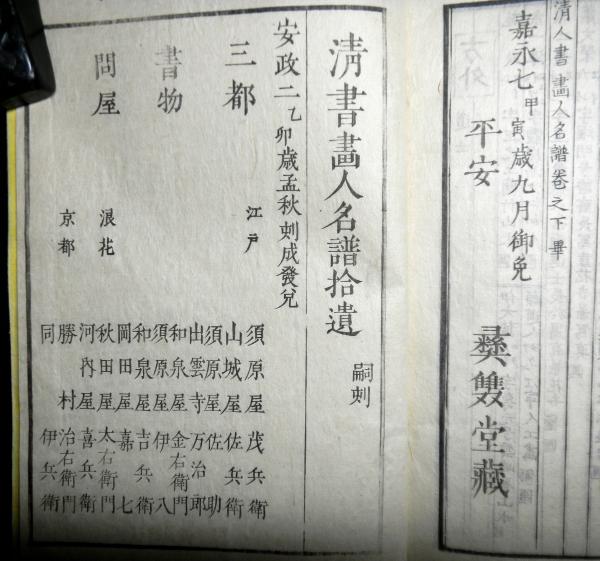 清人書畫人名譜卷之下畢
嘉永七甲寅歳九月御免
平安 彛雙堂藏
清書畫人名譜拾遺 嗣刻
安政二乙卯歳孟秋刻成發兌
三都
書物
問屋
江戸 須原屋茂兵衛
山城屋佐兵衛
須原屋佐助
出雲寺万治郎
和泉屋金右衛門
須原屋伊八
和泉屋吉兵衛
浪花 岡田屋嘉七
秋田屋太右衛門
河内屋喜兵衛
京都 勝村治右衛門
同 伊兵衛